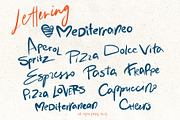 Lettering
Mediterraneo
Aperol Spritz Pizza Dolce Vita
Espresso Pasta Frappe
Pizza Lovers Cappuccino
Mediterranean Cheers